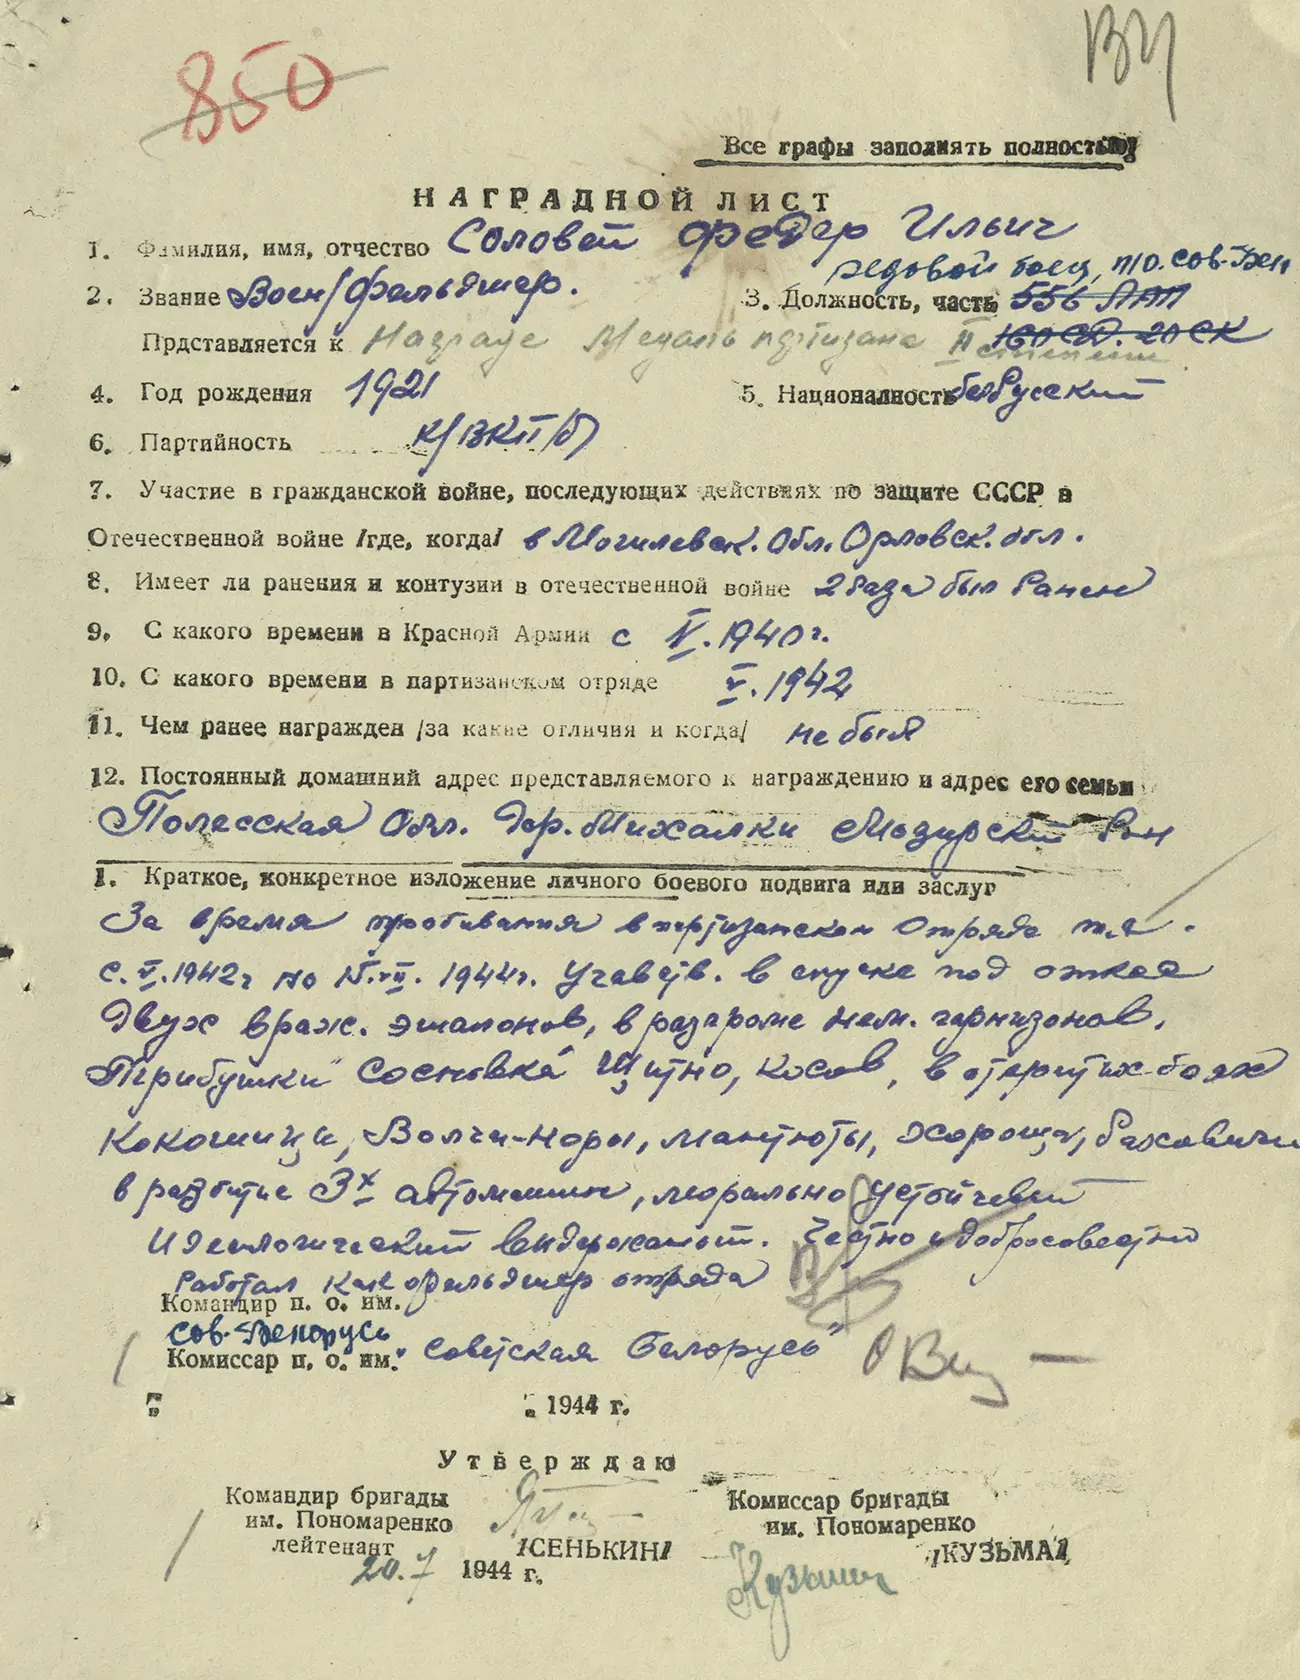 850
ВИ
Все графы заполнять полностью!
НАГРАДНОЙ ЛИСТ
1. Фамилия, имя, отчество Соловей Федер Ильич
редовой боец, п/о. Сов. Бел
2. Звание Воен/Фельдшер. 3. Должность, часть 556 ЛАП
Прдставляется к Награде Медаль партизана II степени 160 СД. 20 СК
4. Год рождения 1921 5. Национальность белРусский
6. Партийность К/ВКП/б/
7. Участие в гражданской войне, последующих действиях по защите СССР в
Отечественной войне /где, когда/ в Могилевск. Обл. Орловск. обл.
8. Имеет ли ранения и контузии в отечественной войне 2 Раза был Ранен
9. С какого времени в Красной Армии с V. 1940 г.
10. С какого времени в партизанском отряде V. 1942
11. Чем ранее награжден /за какие отличия и когда/ не был
12. Постоянный домашний адрес представляемого к награждению и адрес его семьи
Полесская Обл. Дер. Михалки Мозирский Рн
1. Краткое, конкретное изложение личного боевого подвига или заслуг
За время пробивания в партизанском Отряде т.е.
с. V. 1942г по 15.VII. 1944г. Учавств. в спуске под откос
Двух враж. эшалонов, в разгроме нем. гарнизонов,
"Трибушки" Сосновка, Щитно, Косов, в открытих боях
Кокошици, Волчи-Норы, Мантюты, Хороща, Раховичи
в развитие 3х автомашин, морально устойчевый
Идеологический выдержаный. Честно и добросовестно
Работал как фельдшер отряда
Командир п. о. им.
Сов. Белорусь
Комиссар п. о. им. "Советская Белорусь"
" " 1944 г.
Утверждаю
Командир бригады Комиссар бригады
им. Пономаренко им. Пономаренко
лейтенант /СЕНЬКИН/ /КУЗЬМА/
20.7 1944 г. Кузьмин